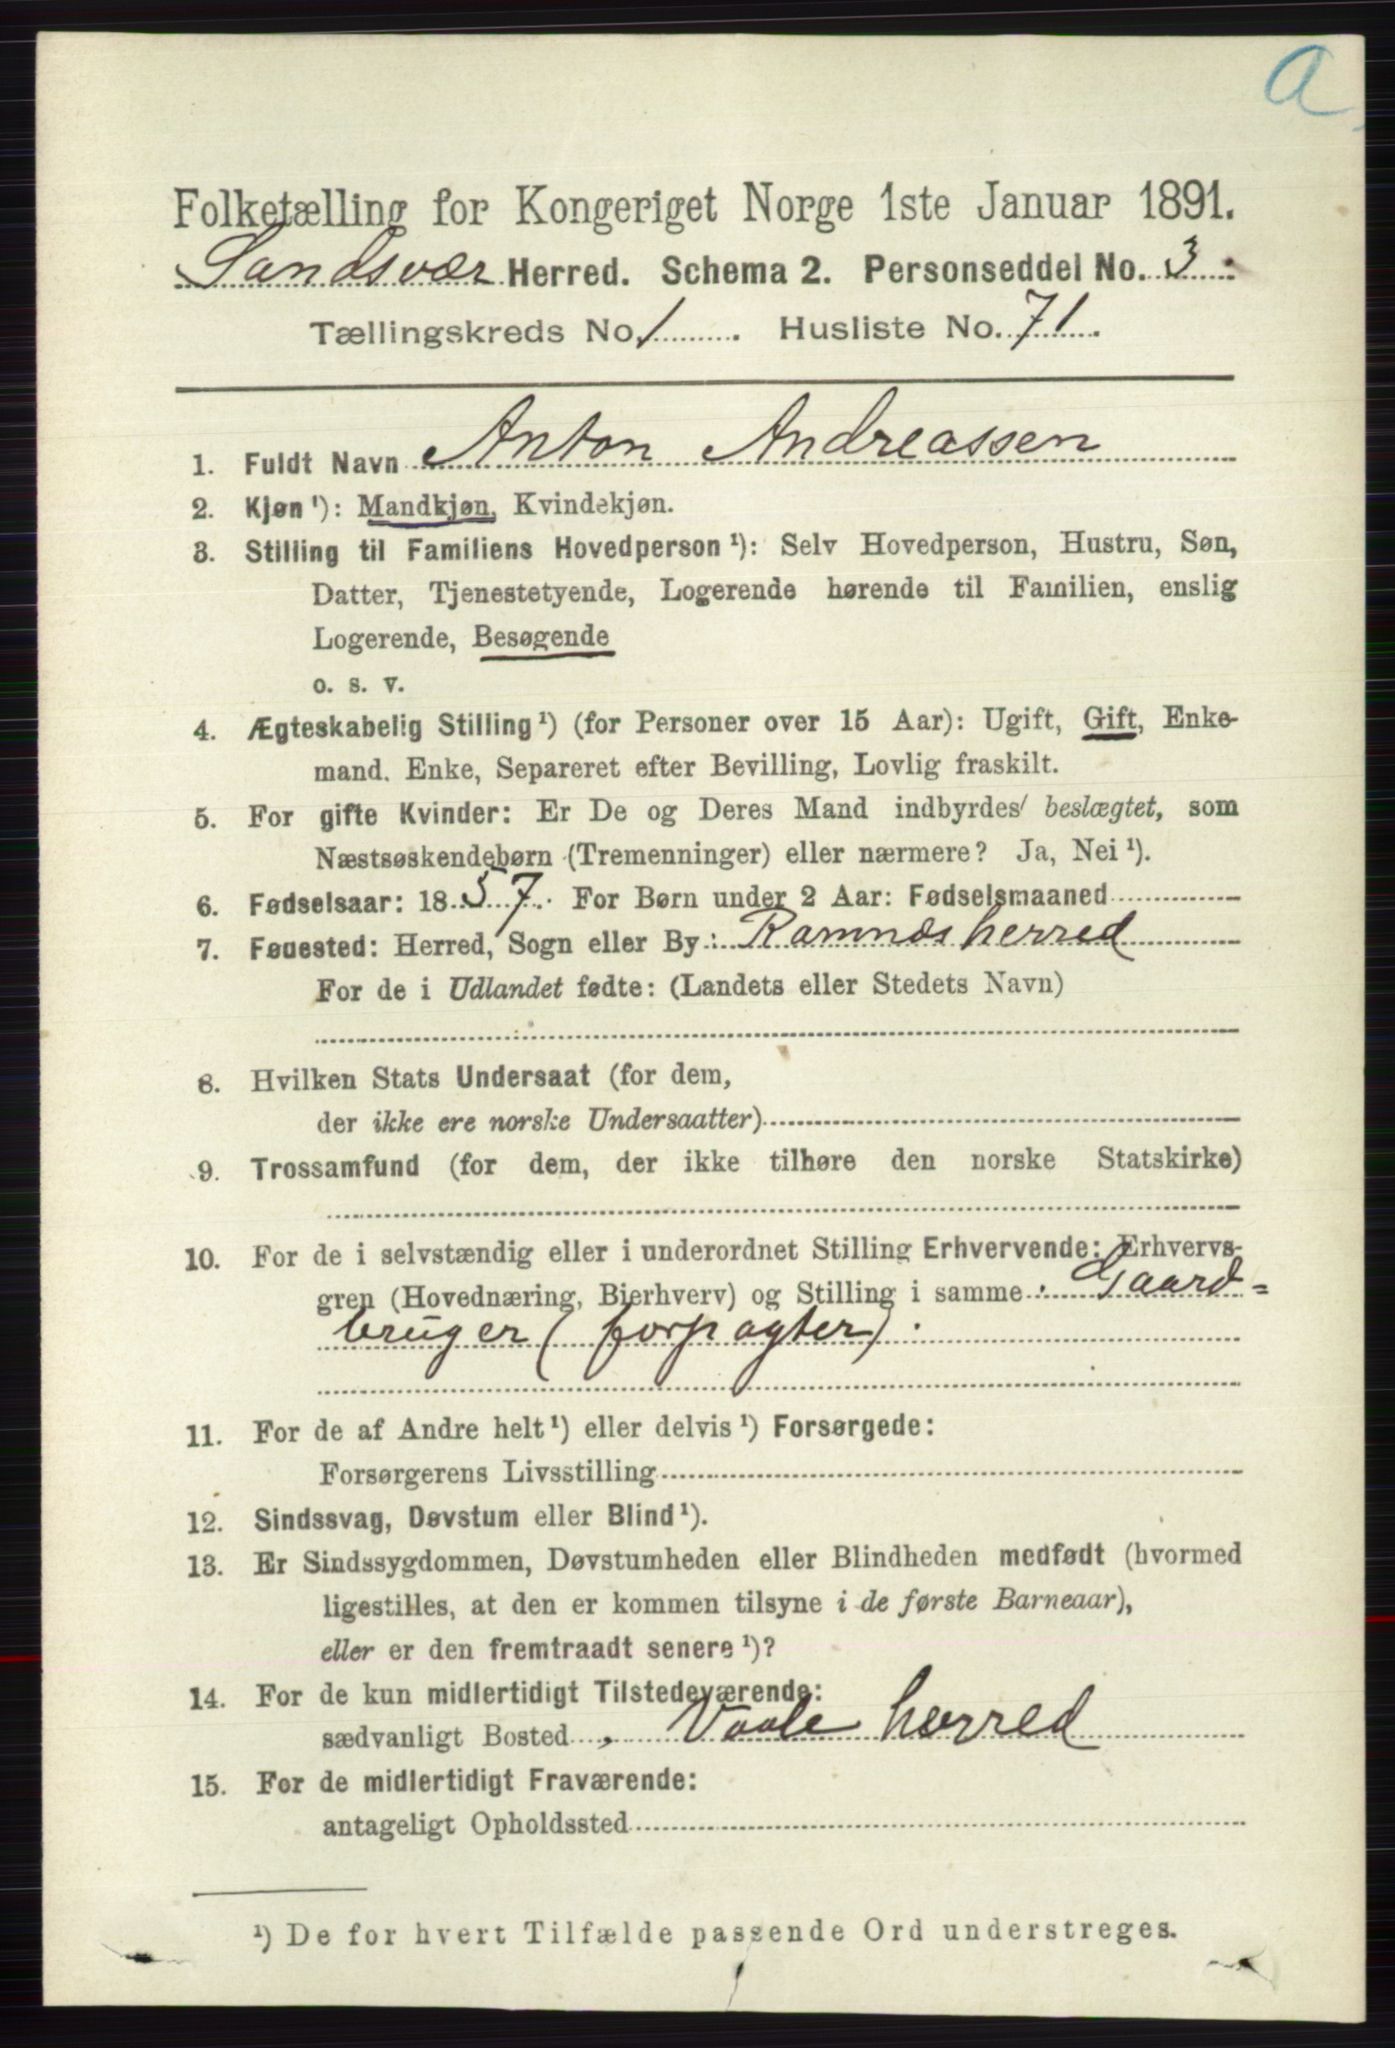 a
Folketælling for Kongeriget Norge 1ste Januar 1891.
Sandsvær Herred. Schema 2. Personseddel No. 3.
Tællingskreds No. 1. Husliste No. 71.
1. Fuldt Navn Anton Andreassen
2. Kjøn¹): Mandkjøn, Kvindekjøn.
3. Stilling til Familiens Hovedperson¹): Selv Hovedperson, Hustru, Søn,
Datter, Tjenestetyende, Logerende hørende til Familien, enslig
Logerende, Besøgende
o. s. v.
4. Ægteskabelig Stilling¹) (for Personer over 15 Aar): Ugift, Gift, Enke-
mand. Enke, Separeret efter Bevilling, Lovlig fraskilt.
5. For gifte Kvinder: Er De og Deres Mand indbyrdes beslægtet, som
Næstsøskendebørn (Tremenninger) eller nærmere? Ja, Nei¹).
6. Fødselsaar: 1857. For Børn under 2 Aar: Fødselsmaaned
7. Føuested: Herred, Sogn eller By: Ramnæs herred
For de i Udlandet fødte: (Landets eller Stedets Navn)
8. Hvilken Stats Undersaat (for dem,
der ikke ere norske Undersaatter)
9. Trossamfund (for dem, der ikke tilhøre den norske Statskirke)
10. For de i selvstændig eller i underordnet Stilling Erhvervende: Erhvervs-
gren (Hovednæring, Bierhverv) og Stilling i samme . Gaard=
bruger (forpagter).
11. For de af Andre helt¹) eller delvis¹) Forsørgede:
Forsørgerens Livsstilling
12. Sindssvag, Døvstum eller Blind¹).
13. Er Sindssygdommen, Døvstumheden eller Blindheden medfødt (hvormed
ligestilles, at den er kommen tilsyne i de første Barneaar),
eller er den fremtraadt senere¹)?
14. For de kun midlertidigt Tilstedeværende:
sædvanligt Bosted , Vaale herred
15. For de midlertidigt Fraværende:
antageligt Opholdssted
¹) De for hvert Tilfælde passende Ord understreges.